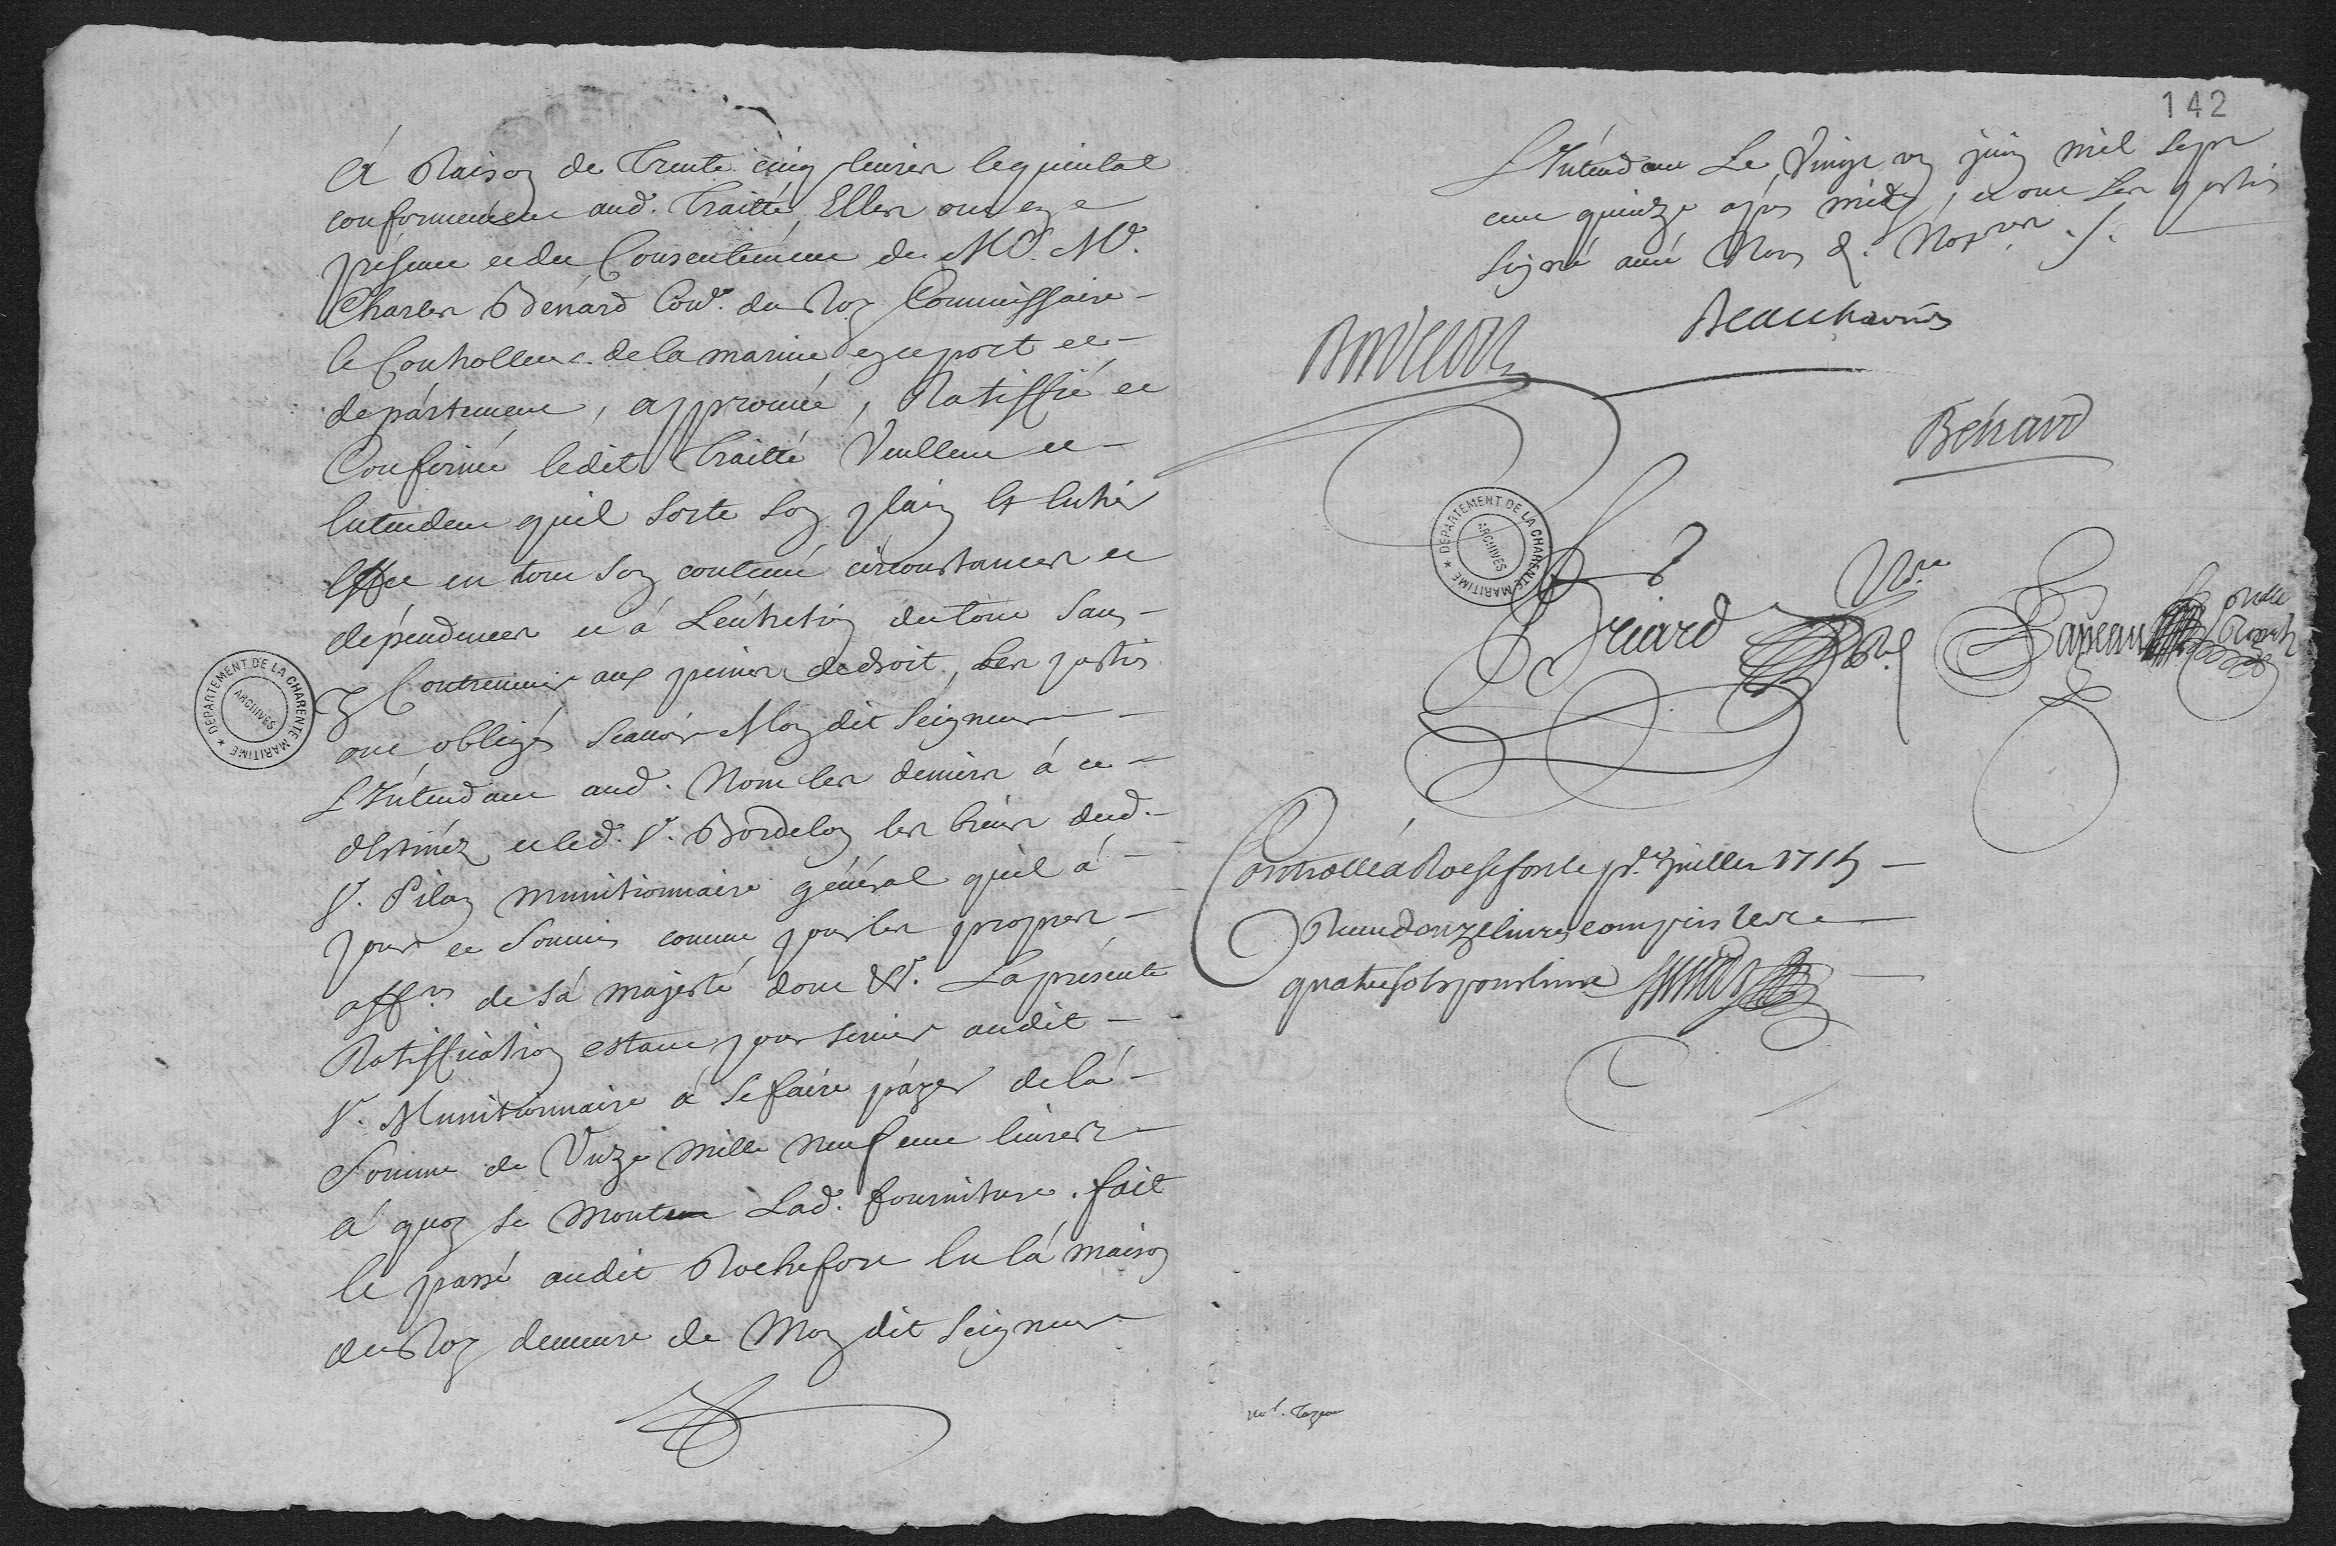 A Raison de Trente cinq livres le quintal
conformement aud. Traitté, Elles ont en
présence et du Consentement de M.e M.e
Charles Bénard Con.er du Roy Commissaire
le Controlleur de la marine en ce port et
département, approuvé, Ratiffié et
Confirmé ledit Traitté Veullent et
Entendent quil sorte son plain et Entier
Effet en tout son contenu circonstances et
dépendences et á Léntretien du tout sans
y Contrevenir aux peines de droit, Les parties
ont obligés Scauoir Mon dit Seigneur
L'Intendant aud. Nom les deniers á ce
destinéz et led. Sr. Bordelon les biens dud.
Sr. Pilon munitionnaire général quil á
pour et Soumis comme pour les propres
aff.res de Sá majesté dont &r. La présente
Ratiffication estant pour servir audit
Sr. Munitionnaire á se faire páyer de lá
Somme de Unze mille neuf cent livres
á quoy se monte Lad. fourniture. fait
et passé audit Rochefort En lá maison
du Roy demeure de Mon dit Seigneur
142
L'Intendant Le Vingt un juin mil sept
cent quinze apres midy, et ont Les parties
Signé avec Nous d. No.res ./.
Beauharnois
Bénard
DEPARTEMENT DE LA CHARENTE MARITIME
ARCHIVES
Briard
N.re
Rl
Controllé á Rochefort le pr. Juillet 1715
Receu douze livres compris les
quatre sols pour livre
DEPARTEMENT DE LA CHARENTE MARITIME
ARCHIVES